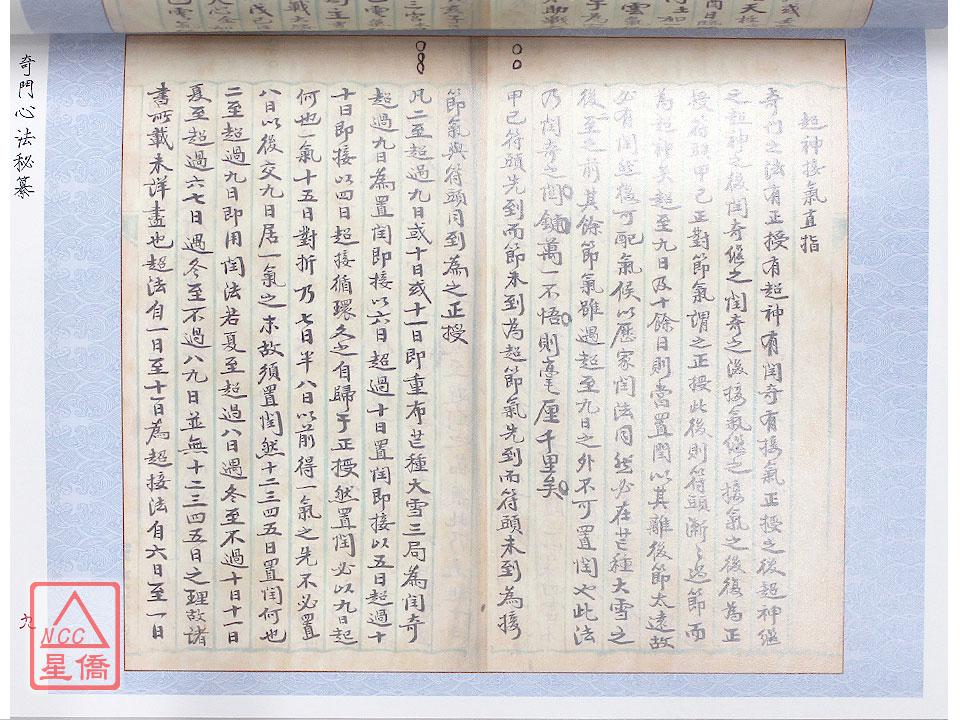 超神接氣直指
奇門之法有正授有超神有閏奇有接氣正授之後超神繼
之超神之後閏奇繼之閏奇之後接氣繼之接氣之後復為正
授符頭甲己正對節氣謂之正授此後則符頭漸〻過節而
為超神矣超至九日及十餘日則當置閏以其離後節太遠故
必有閏然後可配氣候以歷家閏法同然必在芒種大雪之
後二至之前其餘節氣雖過超至九日之外不可置閏也此法
乃閏奇之関鍵萬一不悟則毫厘千里矣
甲己符頭先到而節未到為超節氣先到而符頭未到為接
節氣與符頭同到為之正授
凡二至超過九日或十日或十一日即重布芒種大雪三局為閏奇
超過九日為置閏即接以六日超過十日置閏即接以五日超過十
十日即接以四日超接循環久之自歸于正授然置閏必以九日起
何也一氣十五日對折乃七日半八日以前得一氣之先不必置
八日以後交九日居一氣之末故須置閏然十二三四五日置閏何也
二至超過九日即用閏法若夏至超過八日過冬至不過十日十一日
夏至超過六七日過冬至不過八九日並無十二三四五日之理故諸
書所載未詳盡也超法自一日至十一日為超接法自六日至一日
奇門心法秘纂
九
NCC
星僑